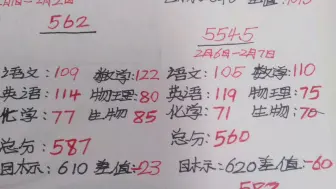 562
语文：109 数学：122
英语：114 物理：80
化学：77 生物：85
总分：587
目标：610 差值：-23
554.5
2月6日-2月7日
语文：105 数学：110
英语：119 物理：75
化学：71 生物：70
总分：560
目标：620 差值：-60